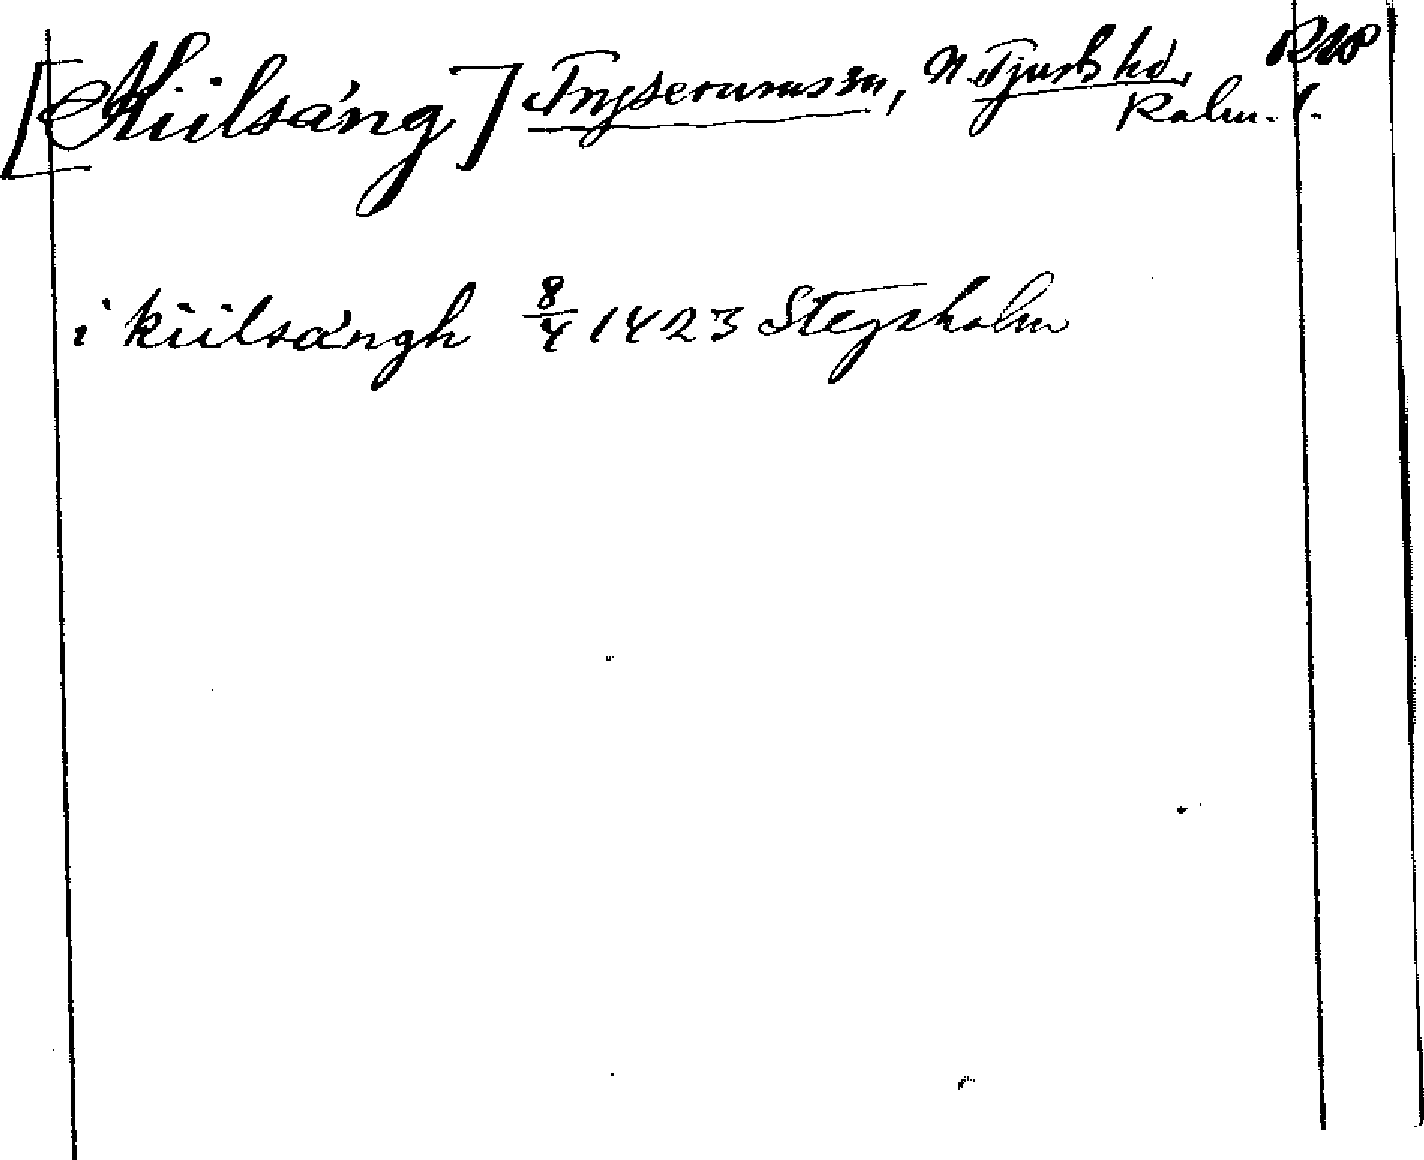 [Kiilsäng] Tryserums sn, N. Tjusts hd, RAP
Kalm. l.
i kiilsängh 8/4 1423 Stegeholm